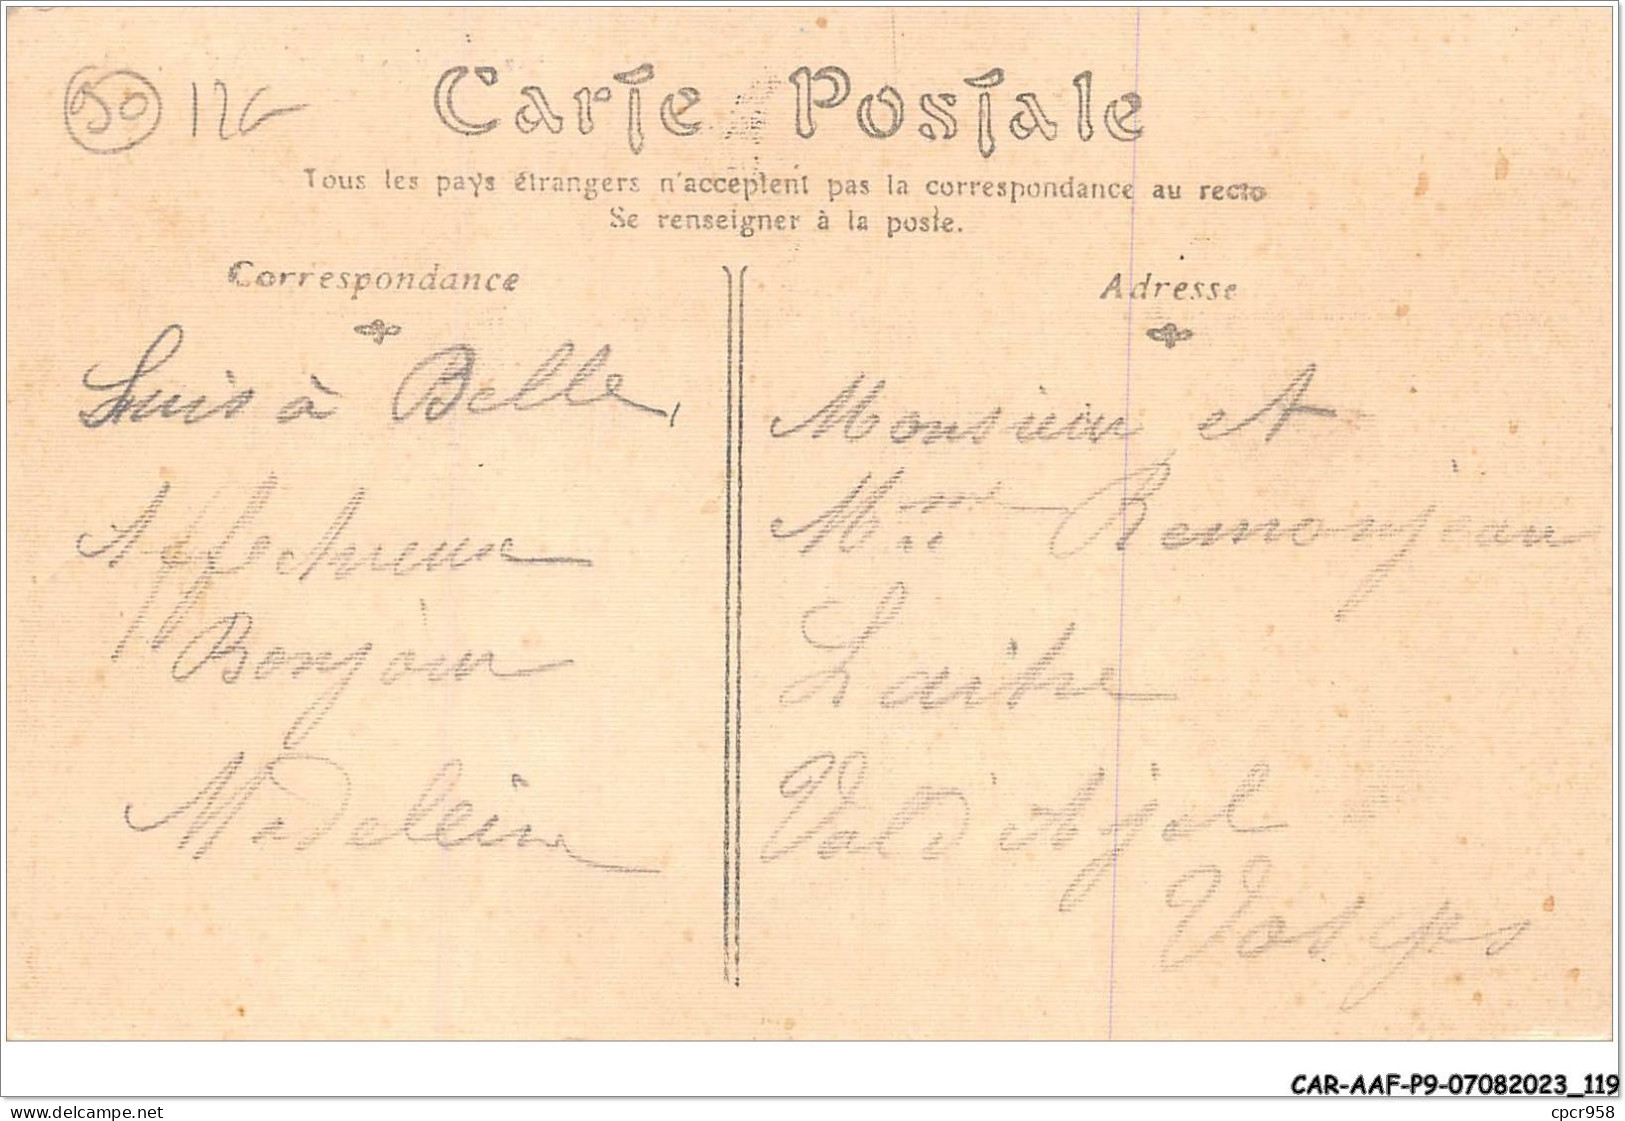 50 12€
Carte Postale
Tous les pays étrangers n'acceptent pas la correspondance au recto
Se renseigner à la poste.
Correspondance
Suis à Belle,
Affectueux
Bonjour
Madeleine
Adresse
Monsieur et
Mme Remonjeau
Laitre
Val d'Ajol
Vosges
CAR-AAF-P9-07082023_119
www.delcampe.net
cpcr958